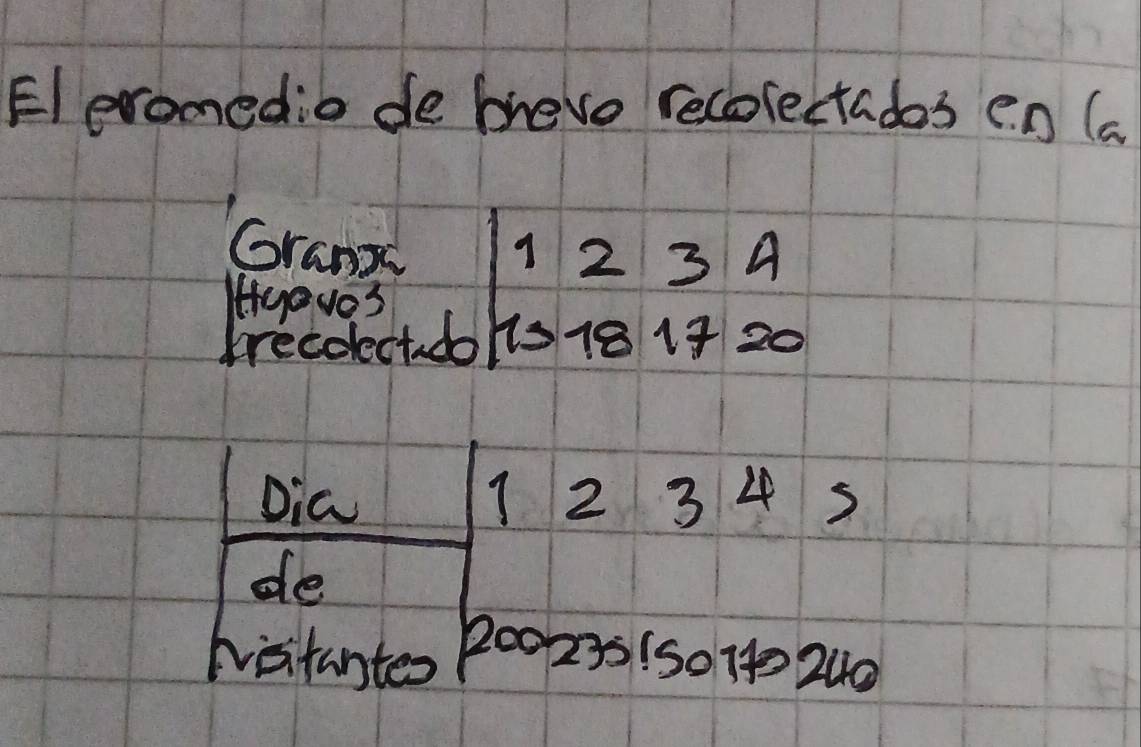 El eromedio de bnevo recolectados en la
Granja 1 2 3 4
Huevos
recolectado 15 18 17 20
Dia 1 2 3 4 5
de
visitantes 200 235 150 170 240